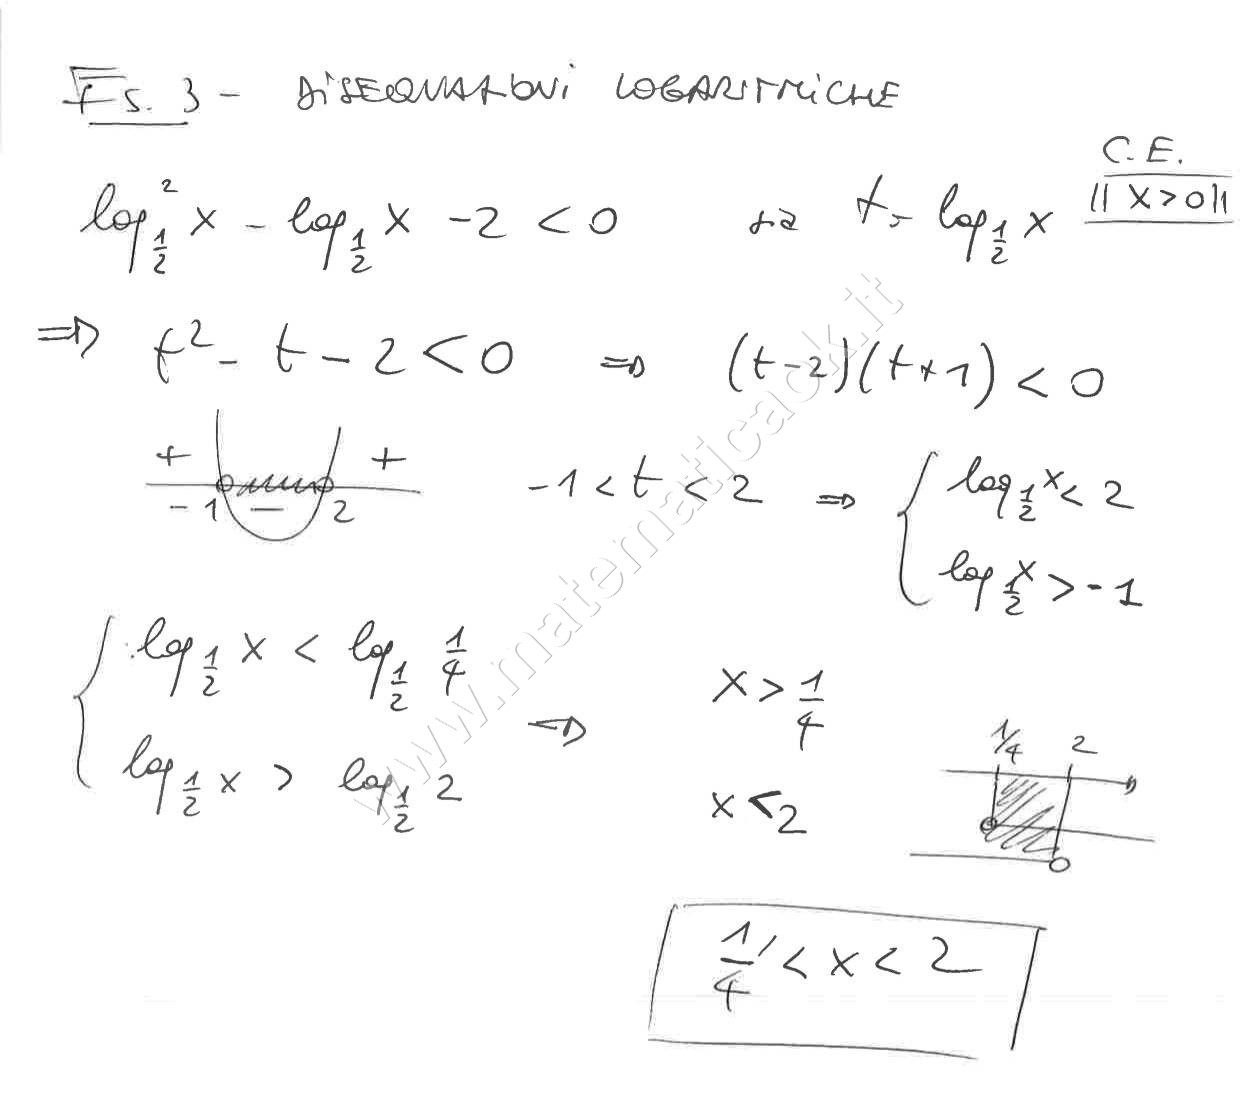 Es. 3 - DISEQUAZIONI LOGARITMICHE
C.E.
log²_{1/2} x - log_{1/2} x - 2 < 0 t = log_{1/2} x || x > 0 ||
⇒ t² - t - 2 < 0 ⇒ (t-2)(t+1) < 0
+ - +
-1 2
-1 < t < 2 ⇒ { log_{1/2} x < 2
log_{1/2} x > -1
{ log_{1/2} x < log_{1/2} 1/4
log_{1/2} x > log_{1/2} 2
⇒
x > 1/4
x < 2
1/4 2
1/4 < x < 2
www.matematicaok.it